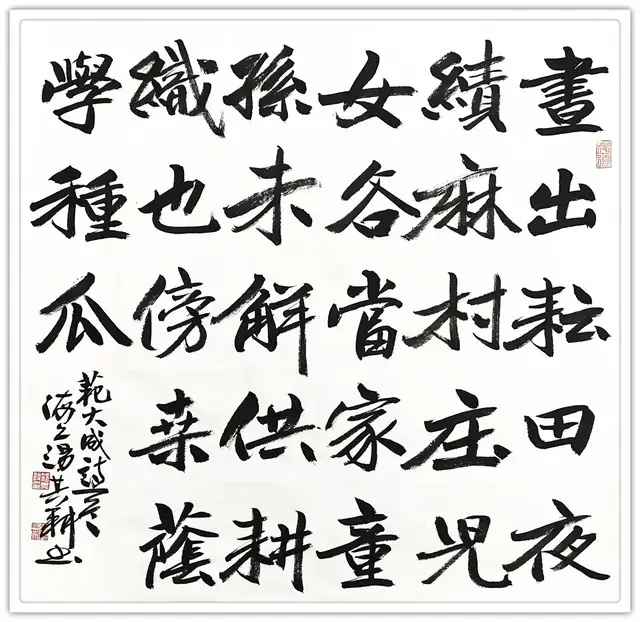 晝出耘田夜
績麻村庄兒
女各當家童
孫未解供耕
織也傍桒蔭
學種瓜
範大成詩
海上湯其耕书